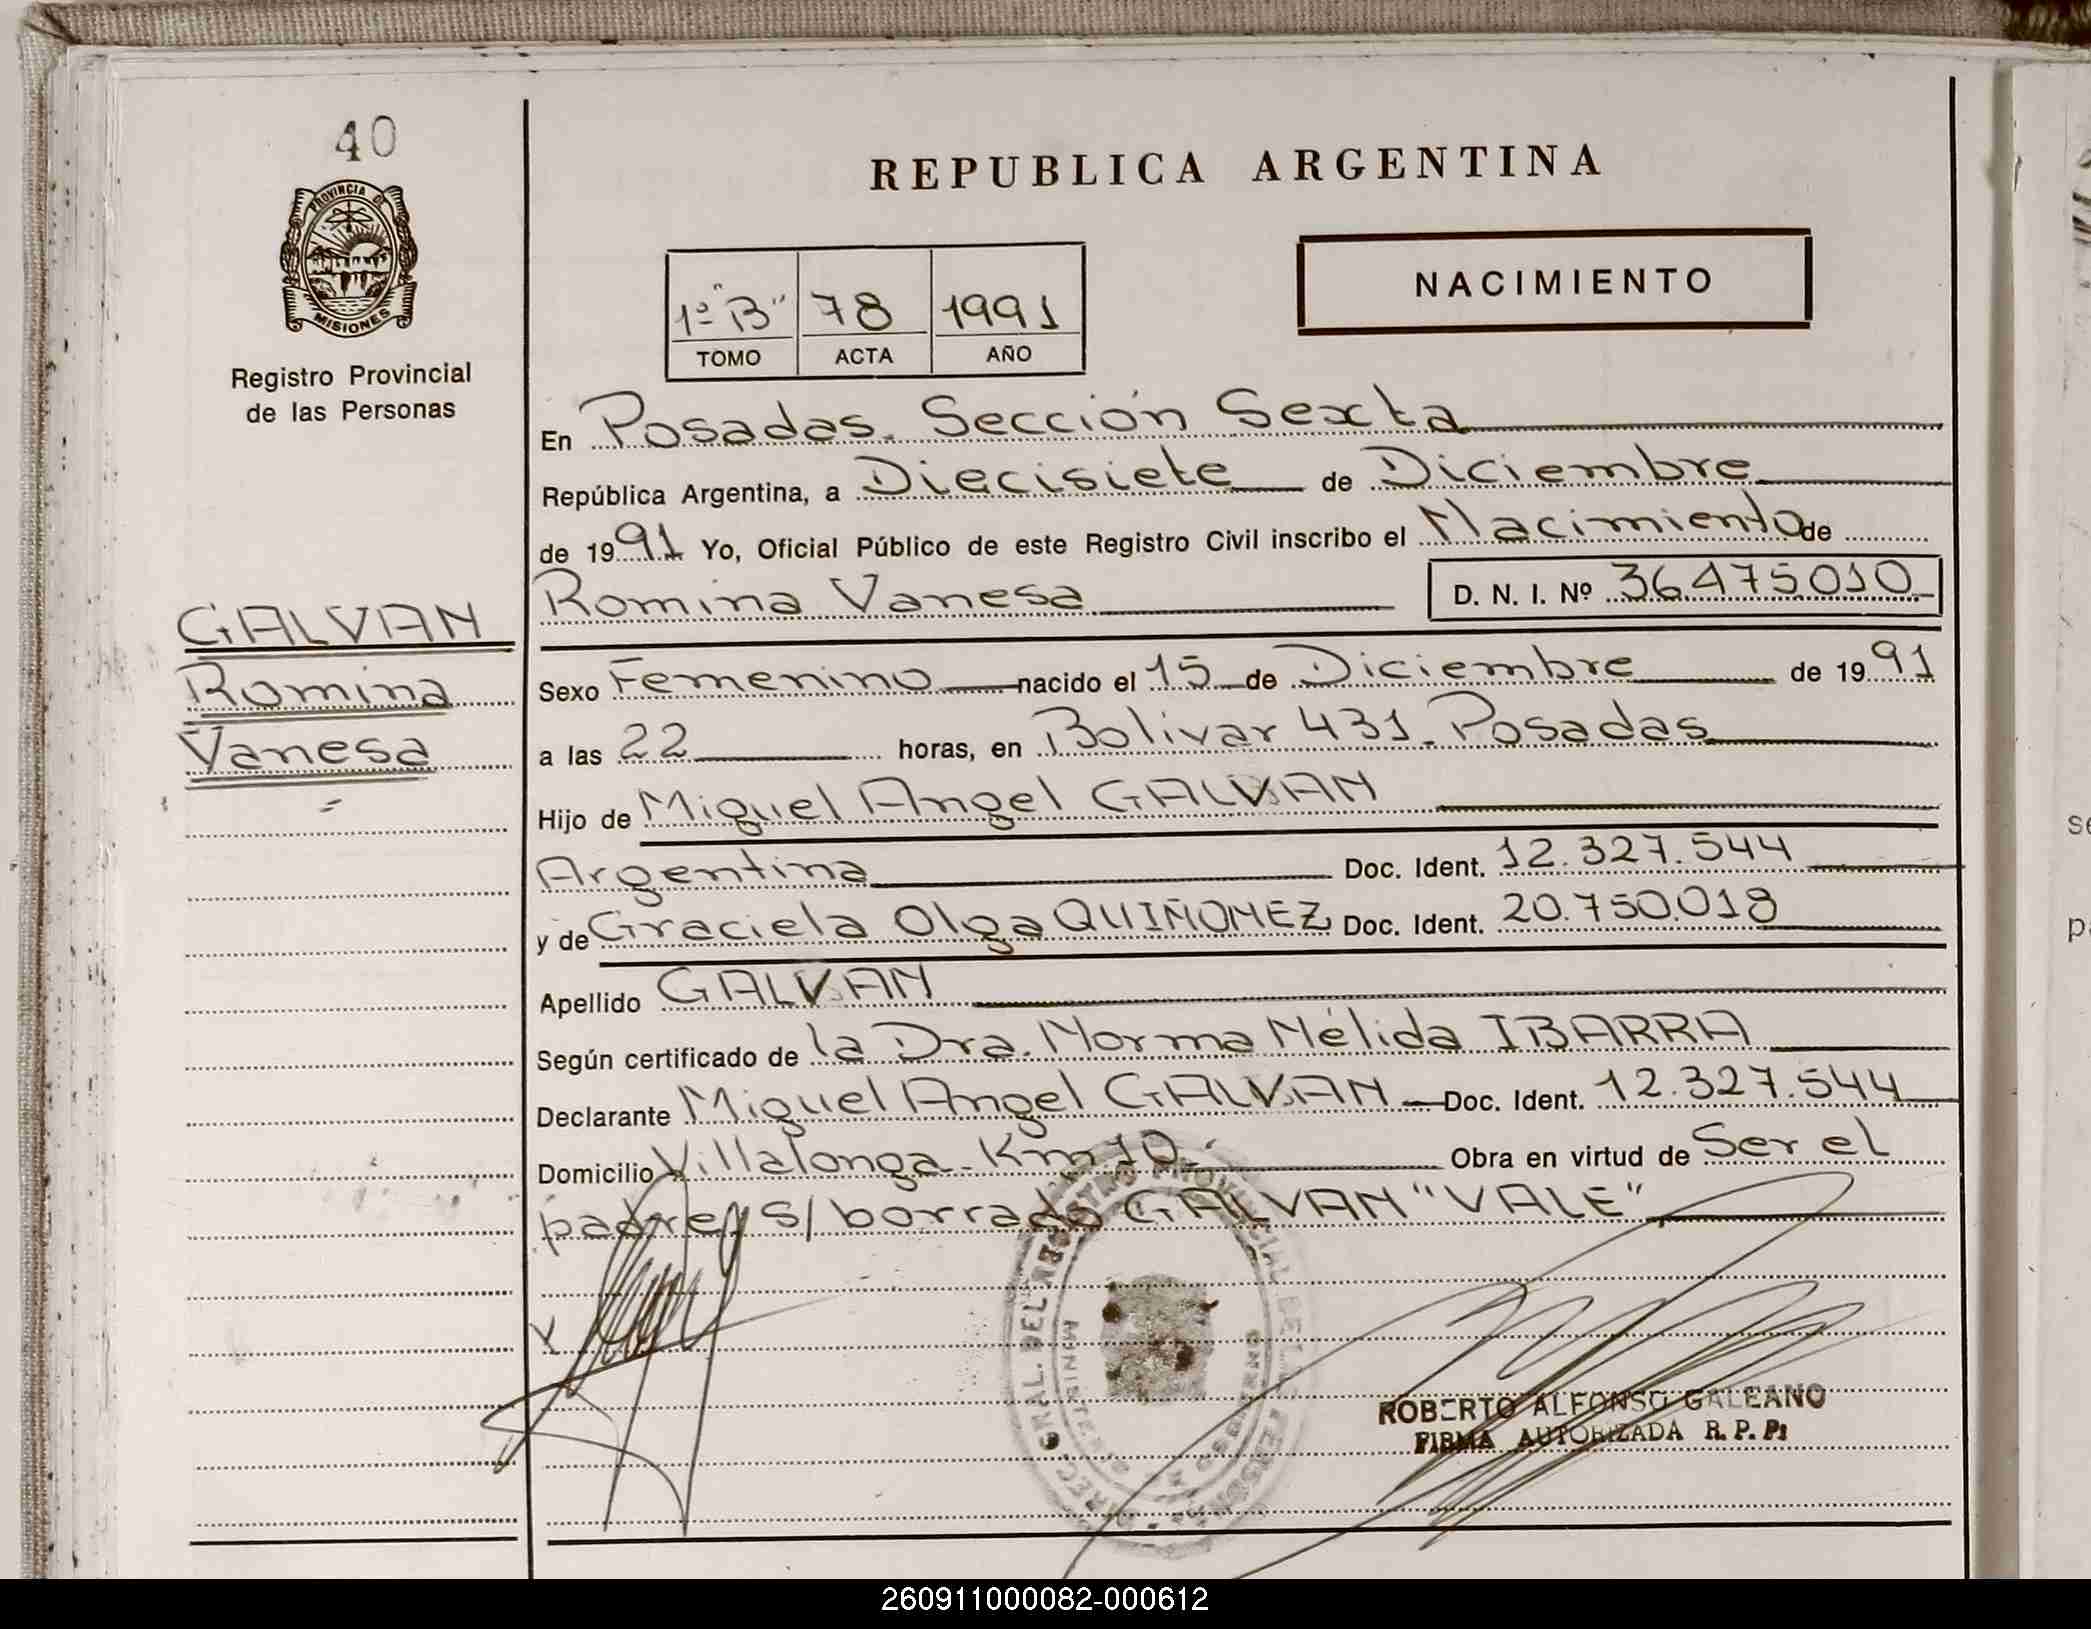 40
PROVINCIA DE
MISIONES
Registro Provincial
de las Personas
GALVAN
Romina
Vanesa
REPUBLICA ARGENTINA
1º "B" 78 1991
TOMO ACTA AÑO
NACIMIENTO
En Posadas. Sección Sexta
República Argentina, a Diecisiete de Diciembre
de 1991 Yo, Oficial Público de este Registro Civil inscribo el Nacimiento de
Romina Vanesa D. N. I. Nº 36475010
Sexo Femenino nacido el 15 de Diciembre de 1991
a las 22 horas, en Bolivar 431. Posadas
Hijo de Miguel Angel GALVAN
Argentina Doc. Ident. 12.327.544
y de Graciela Olga QUIÑONEZ Doc. Ident. 20.750.018
Apellido GALVAN
Según certificado de la Dra. Norma Nélida IBARRA
Declarante Miguel Angel GALVAN Doc. Ident. 12.327.544
Domicilio Villalonga. Km 10. Obra en virtud de Ser el
padre, s/ borrado GALVAN "VALE"
X
GRAL. DEL REGISTRO PROVINCIAL DE LAS PERSONAS
MISIONES
ROBERTO ALFONSO GALEANO
FIRMA AUTORIZADA R. P. P.
260911000082-000612